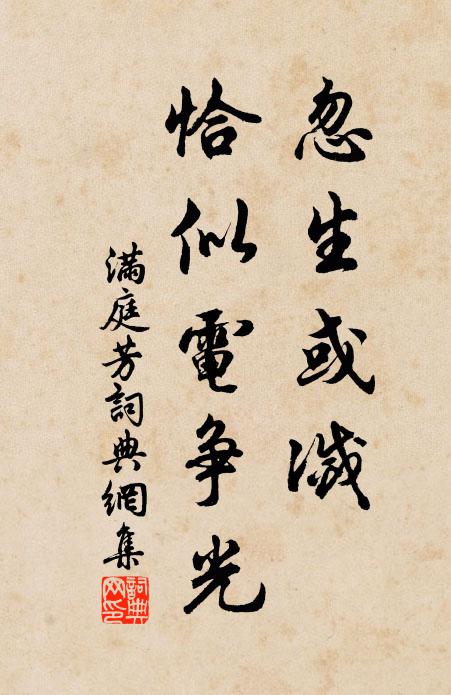 忽生或滅
恰似電争光
滿庭芳詞典網集
詞典
网印